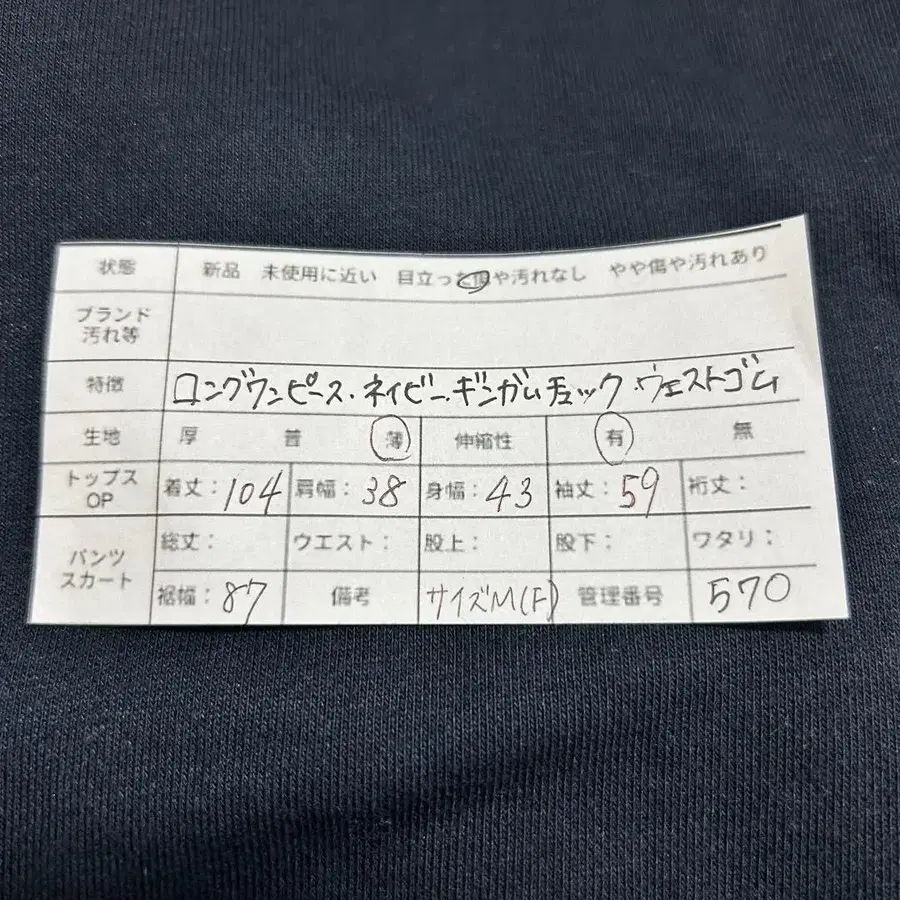 状態 新品 未使用に近い 目立った傷や汚れなし やや傷や汚れあり
ブランド
汚れ等
特徴 ロングワンピース・ネイビー・ギンガムチェック・ウエストゴム
生地 厚 普 薄 伸縮性 有 無
トップス
OP 着丈:104 肩幅:38 身幅:43 袖丈:59 裄丈:
パンツ
スカート 総丈: ウエスト: 股上: 股下: ワタリ:
裾幅:87 備考 サイズM(F) 管理番号 570